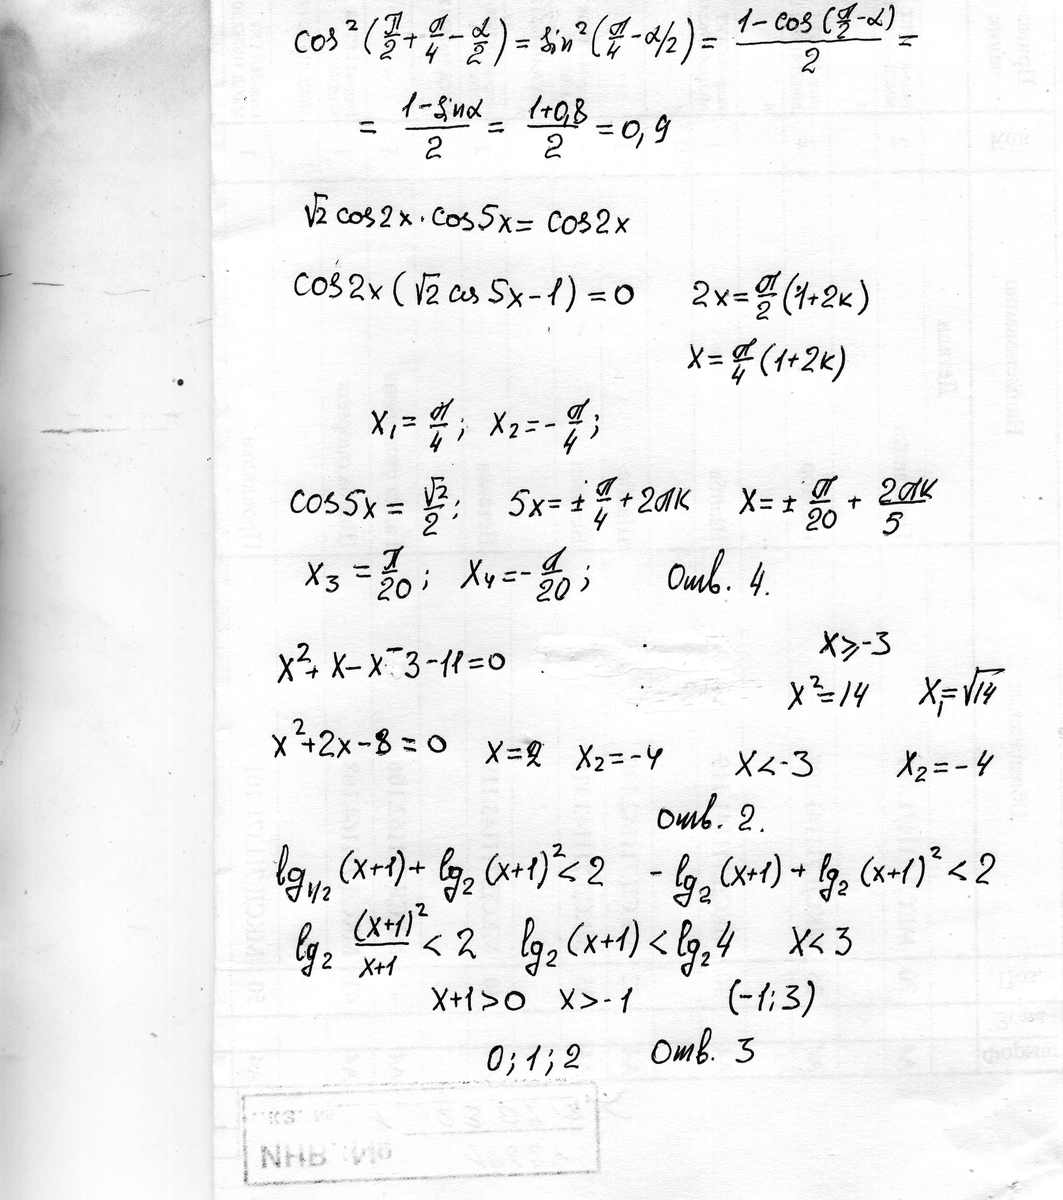 cos² (π/2 + π/4 - α/2) = sin² (π/4 - α/2) = (1 - cos (π/2 - α))/2 =
= (1 - sinα)/2 = (1+0,8)/2 = 0,9
√2 cos2x · cos5x = cos2x
cos2x (√2 cos 5x - 1) = 0 2x = π/2 (1+2к)
x = π/4 (1+2к)
x₁ = π/4 ; x₂ = - π/4 ;
cos5x = √2/2 ; 5x = ± π/4 + 2πк x = ± π/20 + 2πк/5
x₃ = π/20 ; x₄ = - π/20 ; Отв. 4.
x² + x - x - 3 - 11 = 0 x ⩾ -3
x² = 14 x₁ = √14
x² + 2x - 8 = 0 x = 2 x₂ = -4 x < -3 x₂ = -4
Отв. 2.
lg₁/₂ (x+1) + lg₂ (x+1)² < 2 - lg₂ (x+1) + lg₂ (x+1)² < 2
lg₂ (x+1)²/(x+1) < 2 lg₂ (x+1) < lg₂ 4 x < 3
x+1 > 0 x > -1 (-1; 3)
0; 1; 2 Отв. 3